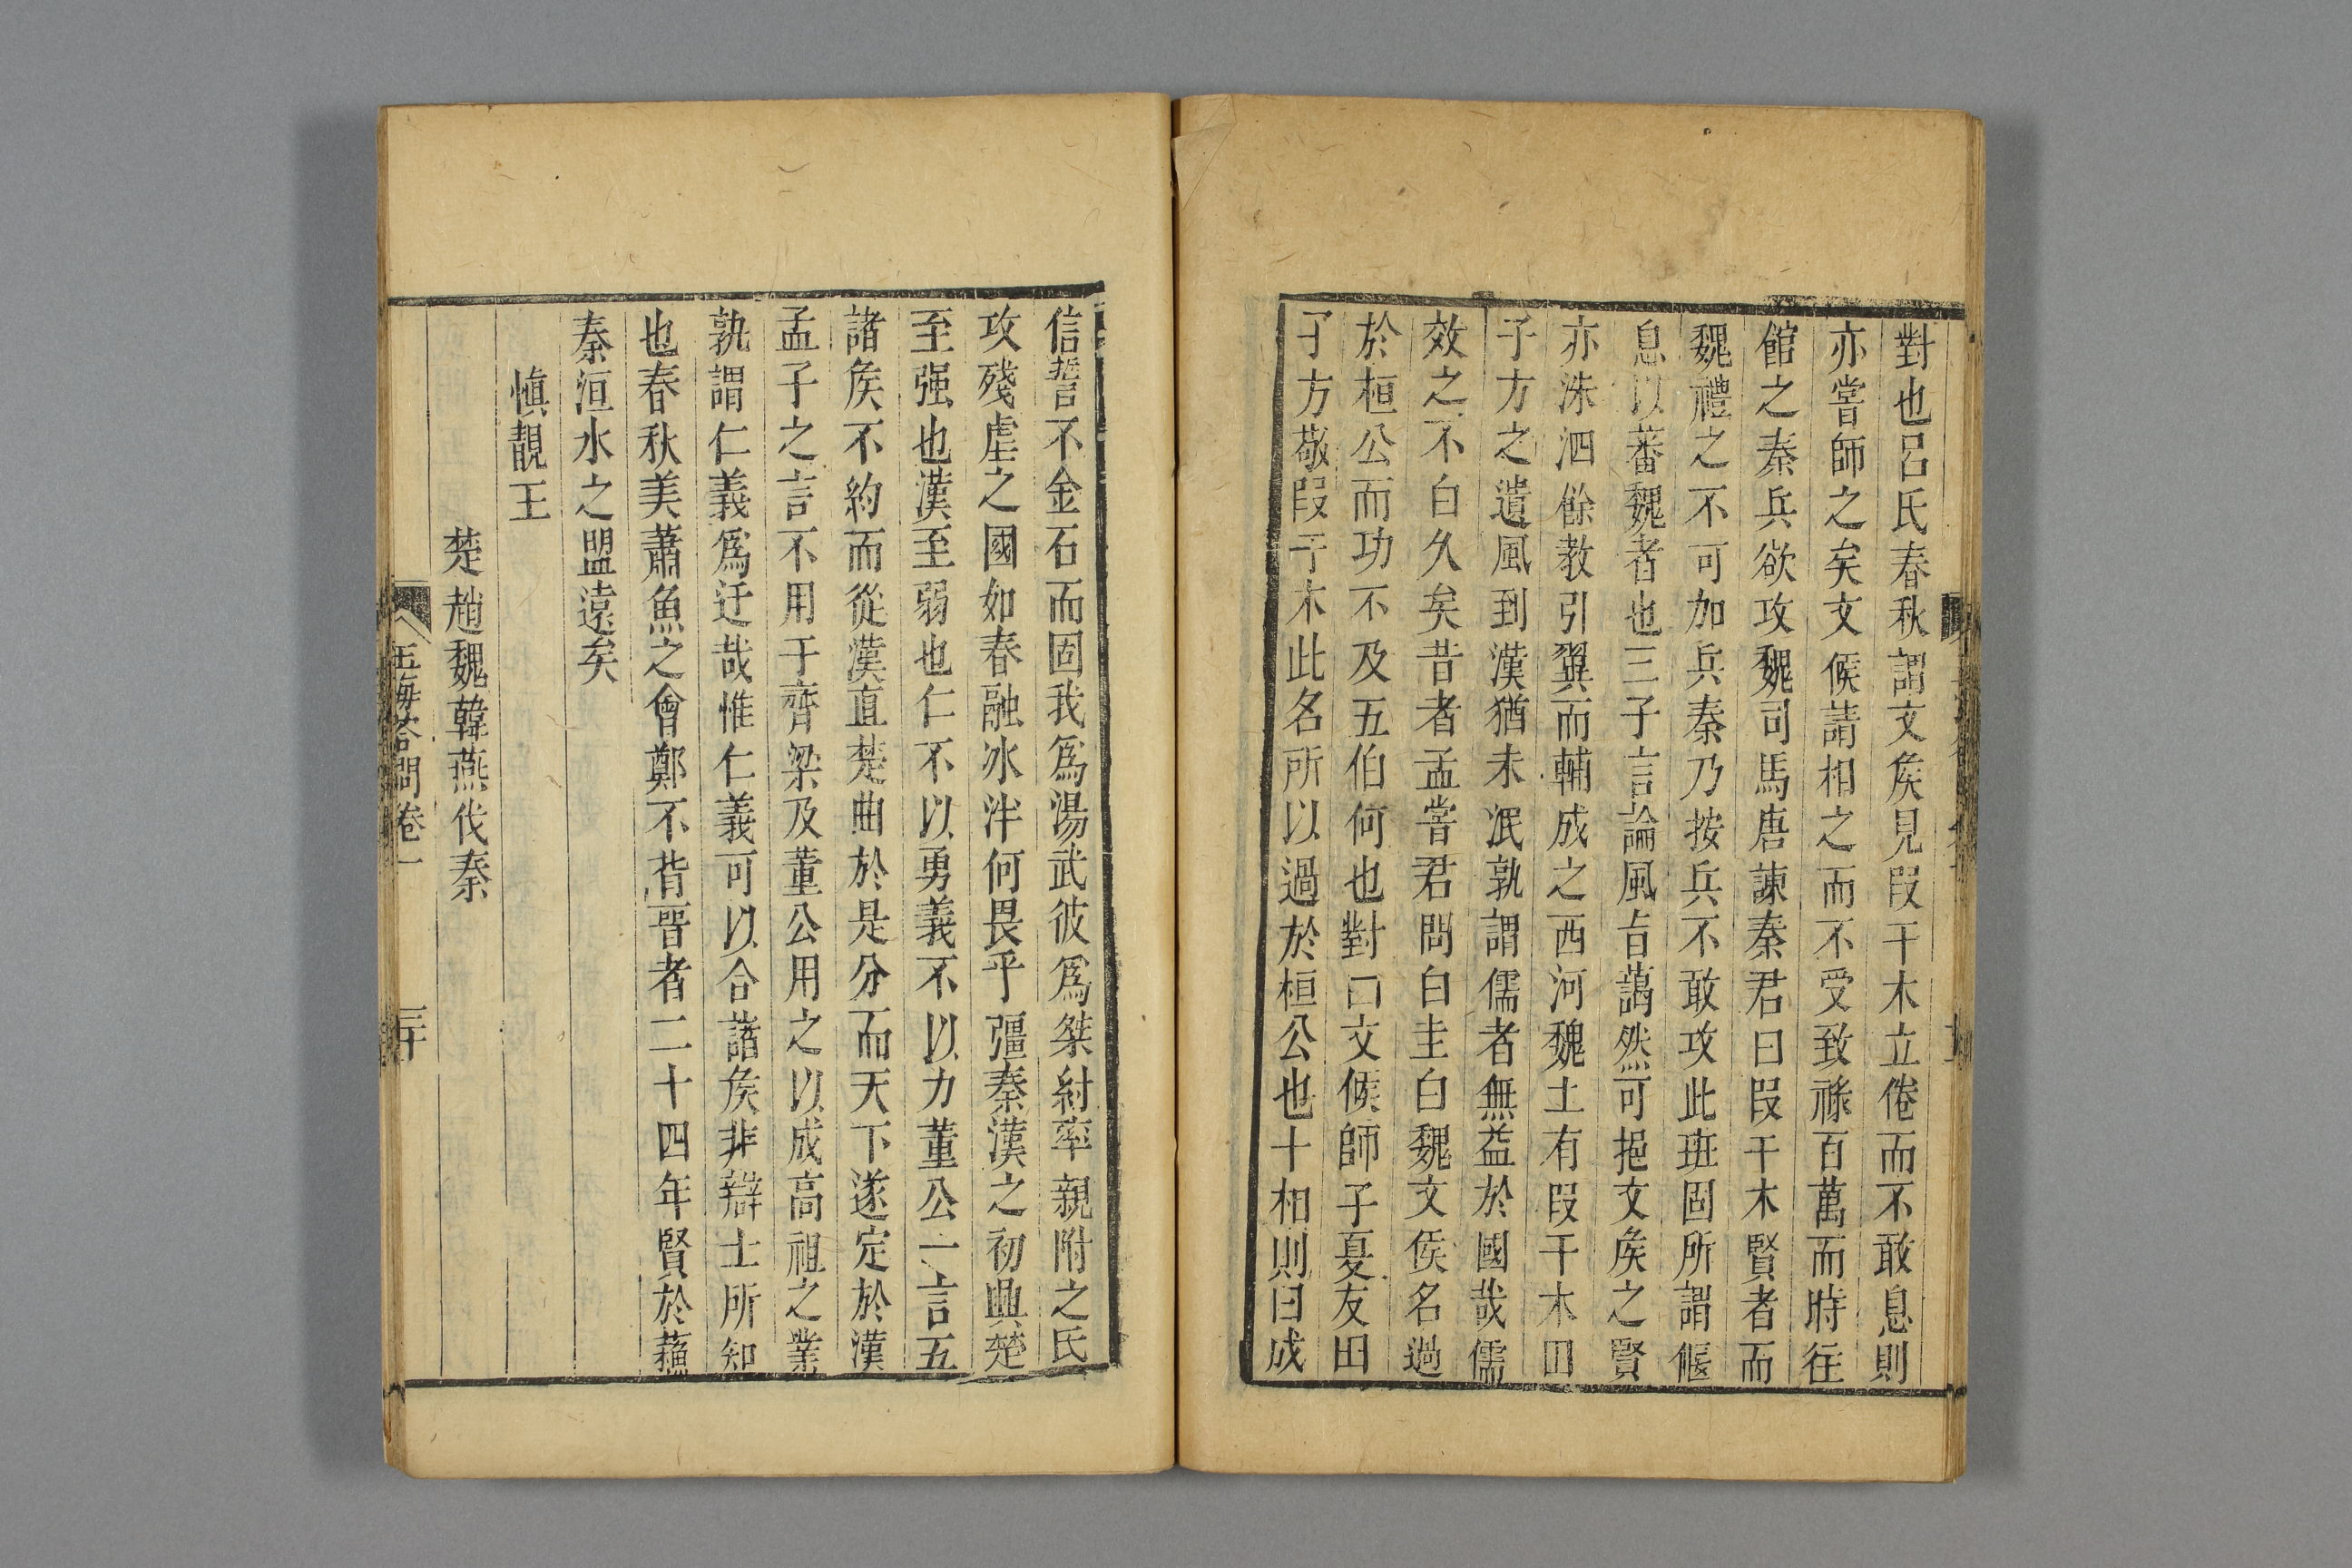 對也呂氏春秋謂文矦見叚干木立倦而不敢息則
亦嘗師之矣文候請相之而不受致祿百萬而時往
館之秦兵欲攻魏司馬唐諫秦君曰叚干木賢者而
魏禮之不可加兵秦乃按兵不敢攻此班固所謂偃
息以蕃魏者也三子言論風旨藹然可挹文矦之賢
亦洙泗餘教引翼而輔成之西河魏土有叚干木田
子方之遺風到漢猶未泯孰謂儒者無益於國哉儒
效之不白久矣昔者孟嘗君問白圭曰魏文侯名過
於桓公而功不及五伯何也對曰文候師子夏友田
子方敬叚干木此名所以過於桓公也卜相則曰成
信誓不金石而固我爲湯武彼爲桀紂率親附之民
攻殘虐之國如春融冰泮何畏乎彊秦漢之初興楚
至强也漢至弱也仁不以勇義不以力董公一言五
諸矦不約而從漢直楚曲於是分而天下遂定於漢
孟子之言不用于齊梁及董公用之以成高祖之業
孰謂仁義爲迂哉惟仁義可以合諸矦非辯士所知
也春秋美蕭魚之會鄭不背晉者二十四年賢於蘓
秦洹水之盟遠矣
愼靚王
楚趙魏韓燕伐秦
五海答問卷一
三十